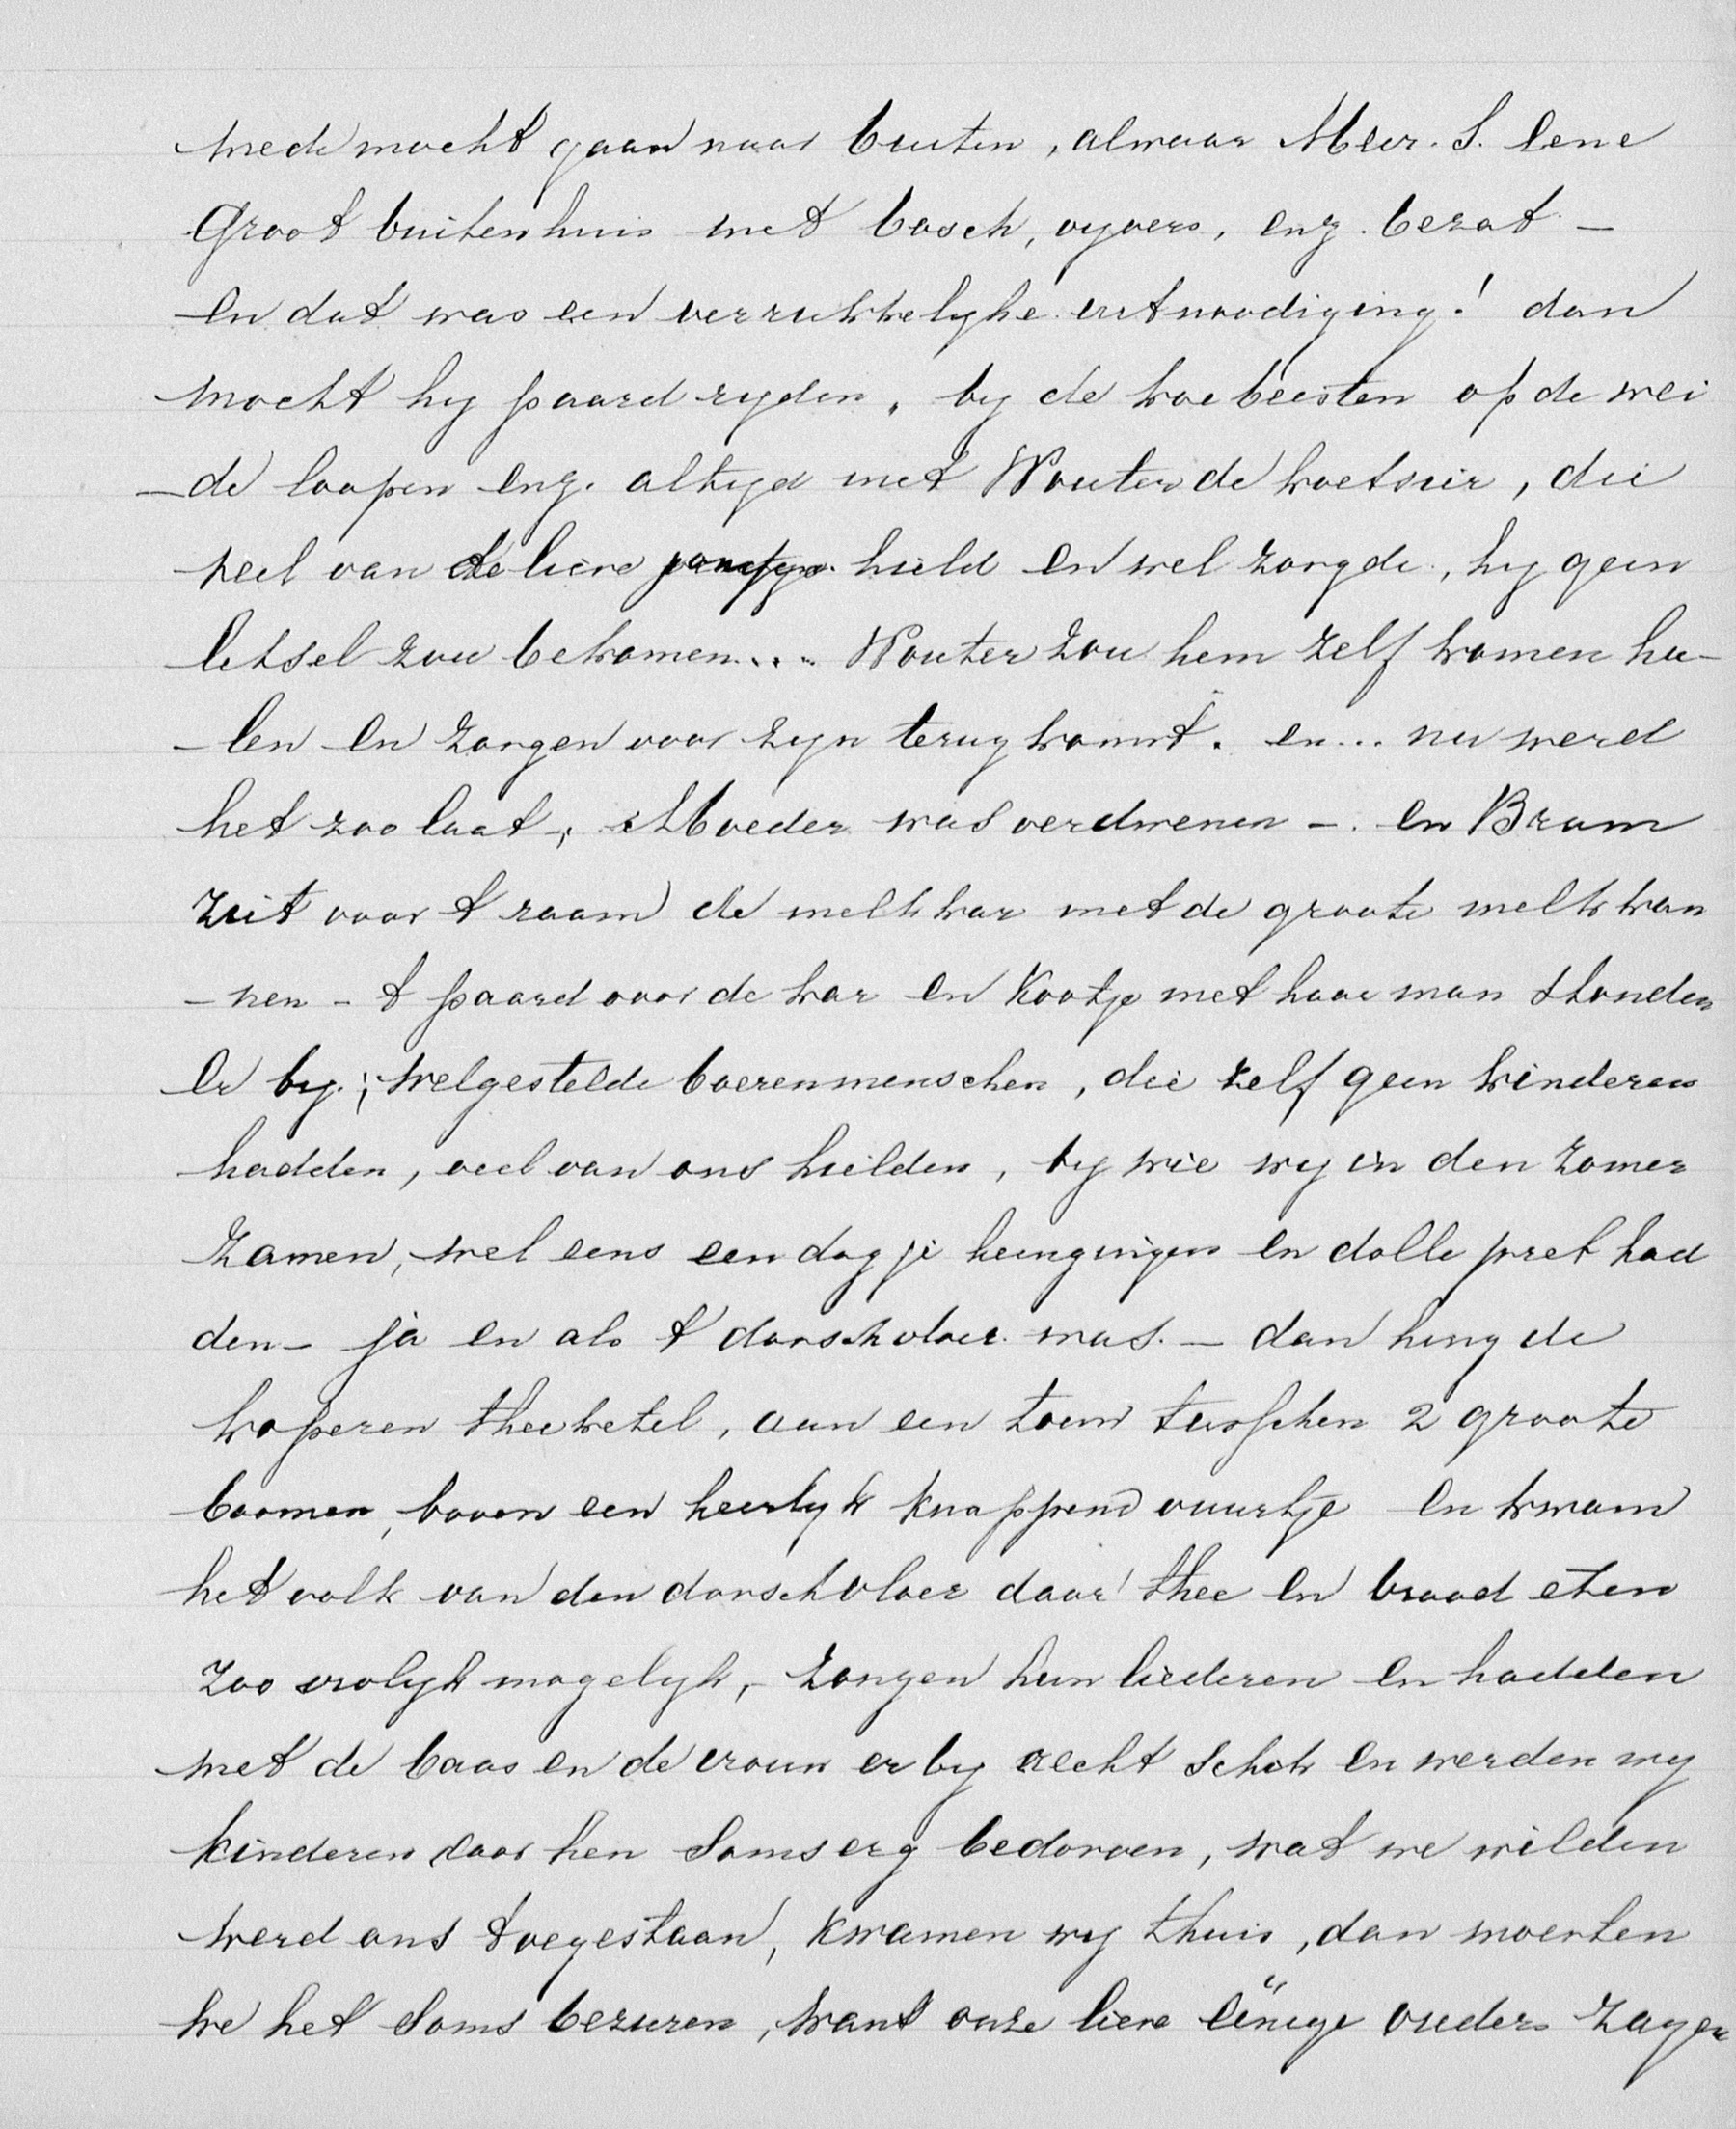 mede mocht gaan naar buiten, alwaar Mevr. S. eene
Groot buitenhuis met bosch, vyvers, enz. bezat –
en dat was een verrukkelyke uitnoodiging! dan
mocht hy paardryden, by de koebeesten op de wei
–de loopen enz. altyd met Wouter de koetsier, die
veel van de lieve jongen hield en wel zorgde, hy geen
letsel zou bekomen... Wouter zou hem zelf komen ha–
–len en zorgen voor zyn terugkomst. en... nu werd
het zoo laat, Moeder was verdwenen –. en Bram
ziet voor 't raam de melkkar met de groote melkkan
–nen – 't paard voor de kar en Kootje met haar man stonden
er by; welgestelde boerenmenschen, die zelf geen kinderen
hadden, veel van ons hielden, by wie wy in den zomer
zamen, wel eens een dagje heengingen en dolle pret had
den – ja en als 't dorschvloer was. – dan hing de
koperen theeketel, aan een touw tusschen 2 groote
boomen, boven een heerlyk knappend vuurtje en kwam
het volk van den dorschvloer daar thee en brood eten
zoo vrolyk mogelyk, – zongen hun liederen en hadden
met de baas en de vrouw er by recht schik en werden wy
kinderen door hen soms erg bedorven, wat we wilden
werd ons toegestaan, kwamen wy thuis, dan moesten
we het soms bezuren, want onze lieve eenige ouders zagen